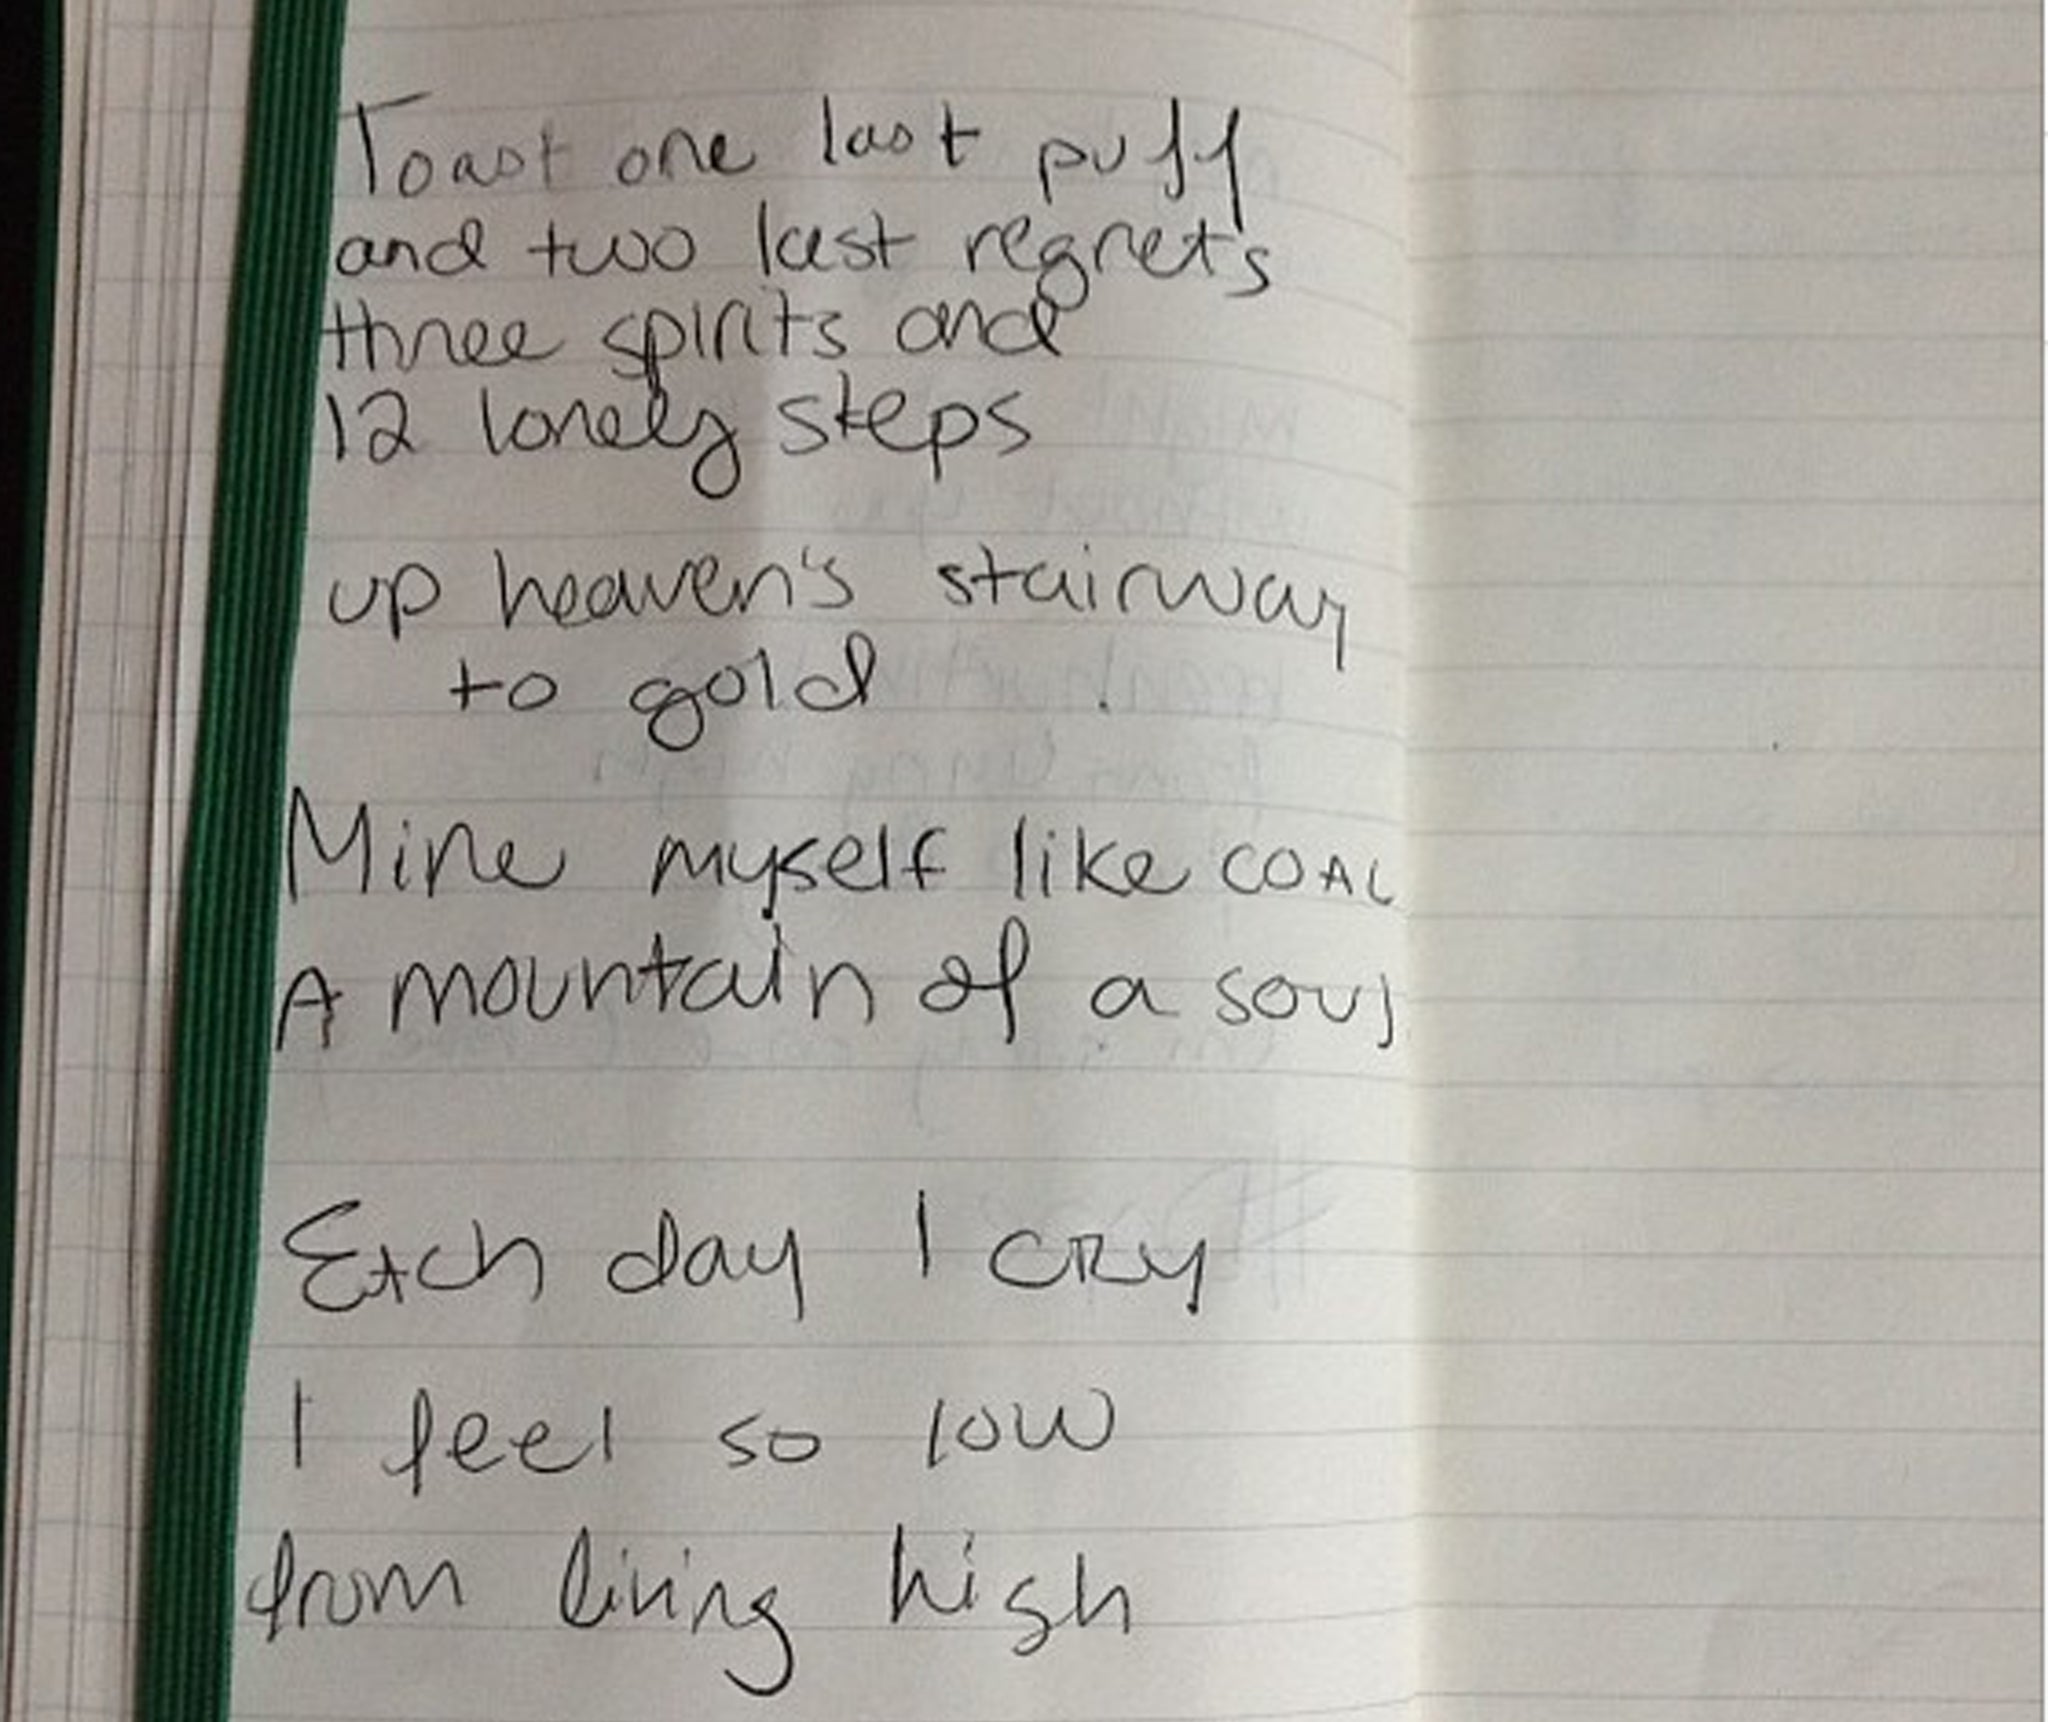 Toast one last puff
and two last regrets
three spirits and
12 lonely steps
up heaven's stairway
to gold
Mine myself like COAL
A mountain of a soul
Each day I CRY
I feel so low
from living high